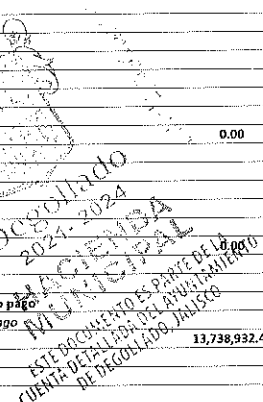 0.00
Degollado
2021- 2024
HACIENDA
MUNICIPAL
0.00
pago
ago
13,738,932.4
ESTE DOCUMENTO ES PARTE DE LA
CUENTA DETALLADA DEL AYUNTAMIENTO
DE DEGOLLADO, JALISCO